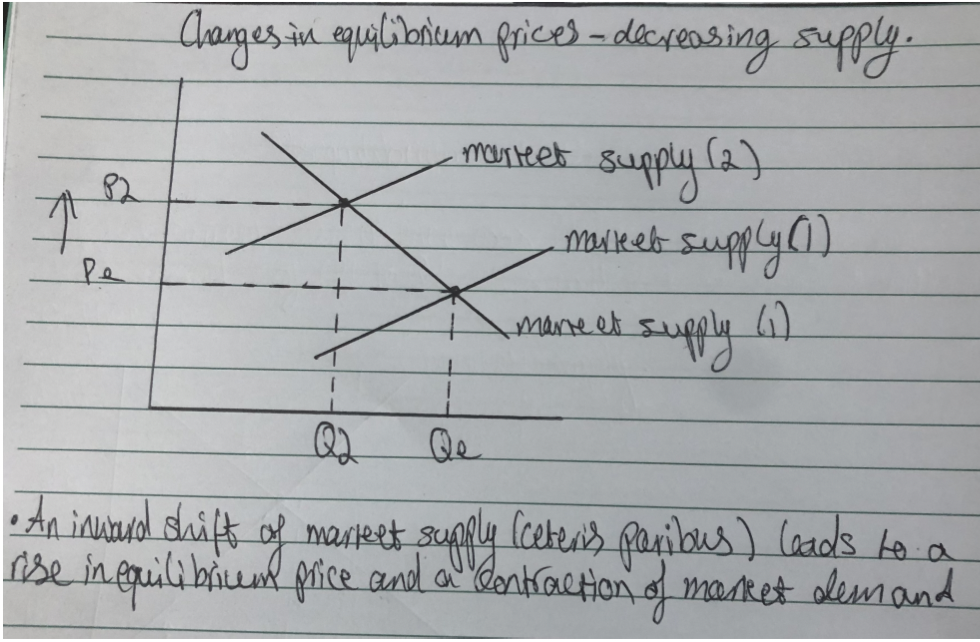 Changes in equilibrium prices - decreasing supply.
market supply (2)
P2
market supply (1)
Pe
market supply (1)
Q2
Qe
• An inward shift of market supply (ceteris paribus) leads to a
rise in equilibrium price and a contraction of market demand